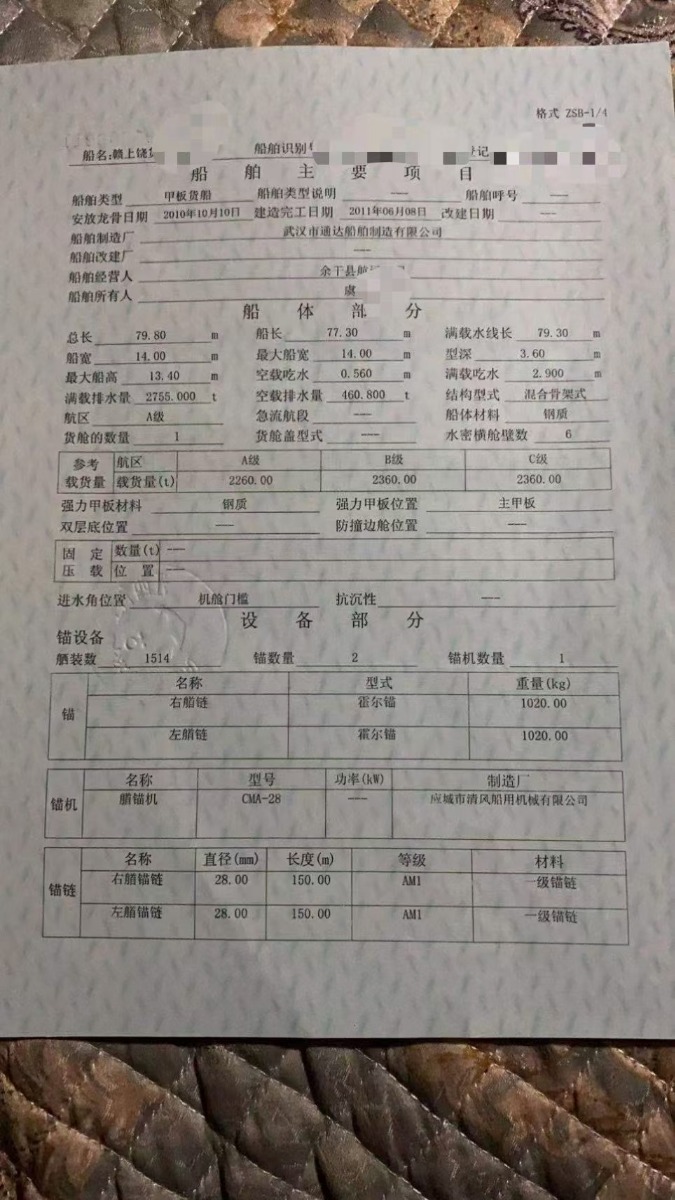 格式 ZSB-1/4
船名:赣上饶 船舶识别 登记
船 舶 主 要 项 目
船舶类型 甲板货船 船舶类型说明 —— 船舶呼号 ——
安放龙骨日期 2010年10月10日 建造完工日期 2011年06月08日 改建日期 ——
船舶制造厂 武汉市通达船舶制造有限公司
船舶改建厂 ——
船舶经营人 余干县航
船舶所有人 虞
船 体 部 分
总长 79.80 m 船长 77.30 m 满载水线长 79.30 m
船宽 14.00 m 最大船宽 14.00 m 型深 3.60 m
最大船高 13.40 m 空载吃水 0.560 m 满载吃水 2.900 m
满载排水量 2755.000 t 空载排水量 460.800 t 结构型式 混合骨架式
航区 A级 急流航段 —— 船体材料 钢质
货舱的数量 1 货舱盖型式 —— 水密横舱壁数 6
参考 航区 A级 B级 C级
载货量 载货量(t) 2260.00 2360.00 2360.00
强力甲板材料 钢质 强力甲板位置 主甲板
双层底位置 —— 防撞边舱位置 ——
固 定 数量(t) ——
压 载 位 置 ——
进水角位置 机舱门槛 抗沉性 ——
设 备 部 分
锚设备
舾装数 1514 锚数量 2 锚机数量 1
名称 型式 重量(kg)
锚 右艏链 霍尔锚 1020.00
左艏链 霍尔锚 1020.00
名称 型号 功率(kW) 制造厂
锚机 艏锚机 CMA-28 —— 应城市清风船用机械有限公司
名称 直径(mm) 长度(m) 等级 材料
锚链 右艏锚链 28.00 150.00 AM1 一级锚链
左艏锚链 28.00 150.00 AM1 一级锚链